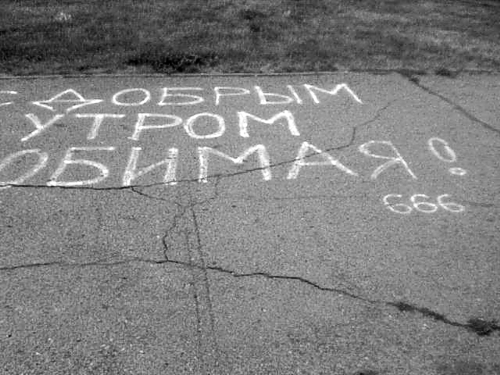 С ДОБРЫМ
УТРОМ
ЮБИМАЯ!
666